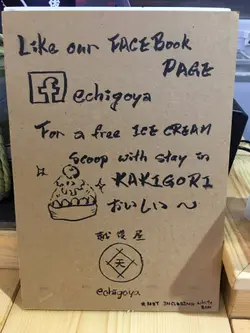 Like our FACEBook
PAGE
f echigoya
For a free ICE CREAM
Scoop with stay in
KAKIGORI
おいしい〜
越後屋
天
echigoya